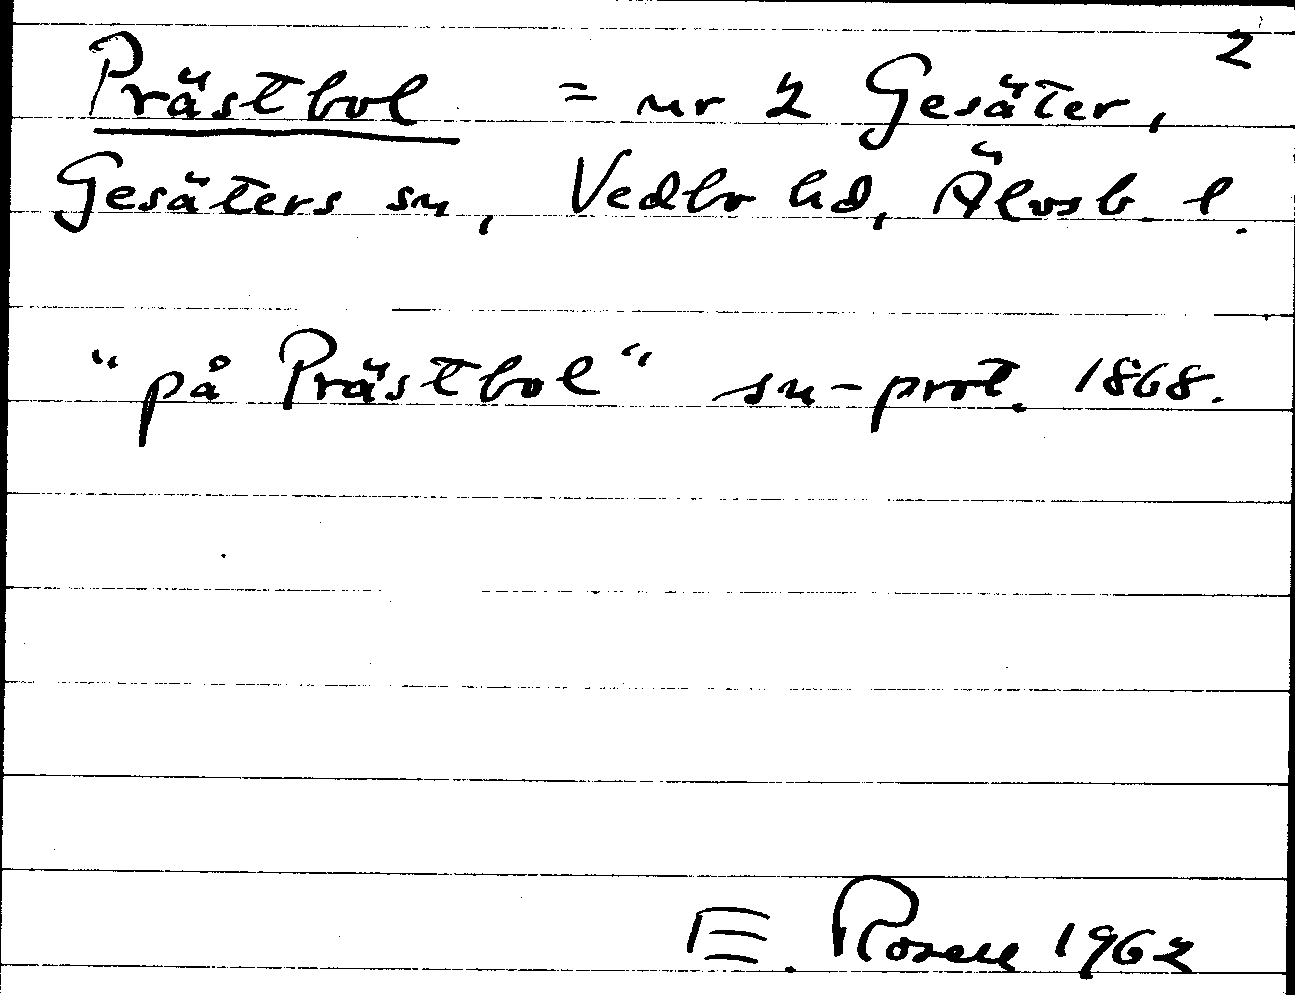 2
Prästbol = nr 2 Gesäter,
Gesäters sn, Vedbo hd, Älvsb. l.
"på Prästbol" sn-prot. 1868.
E. Rosell 1962